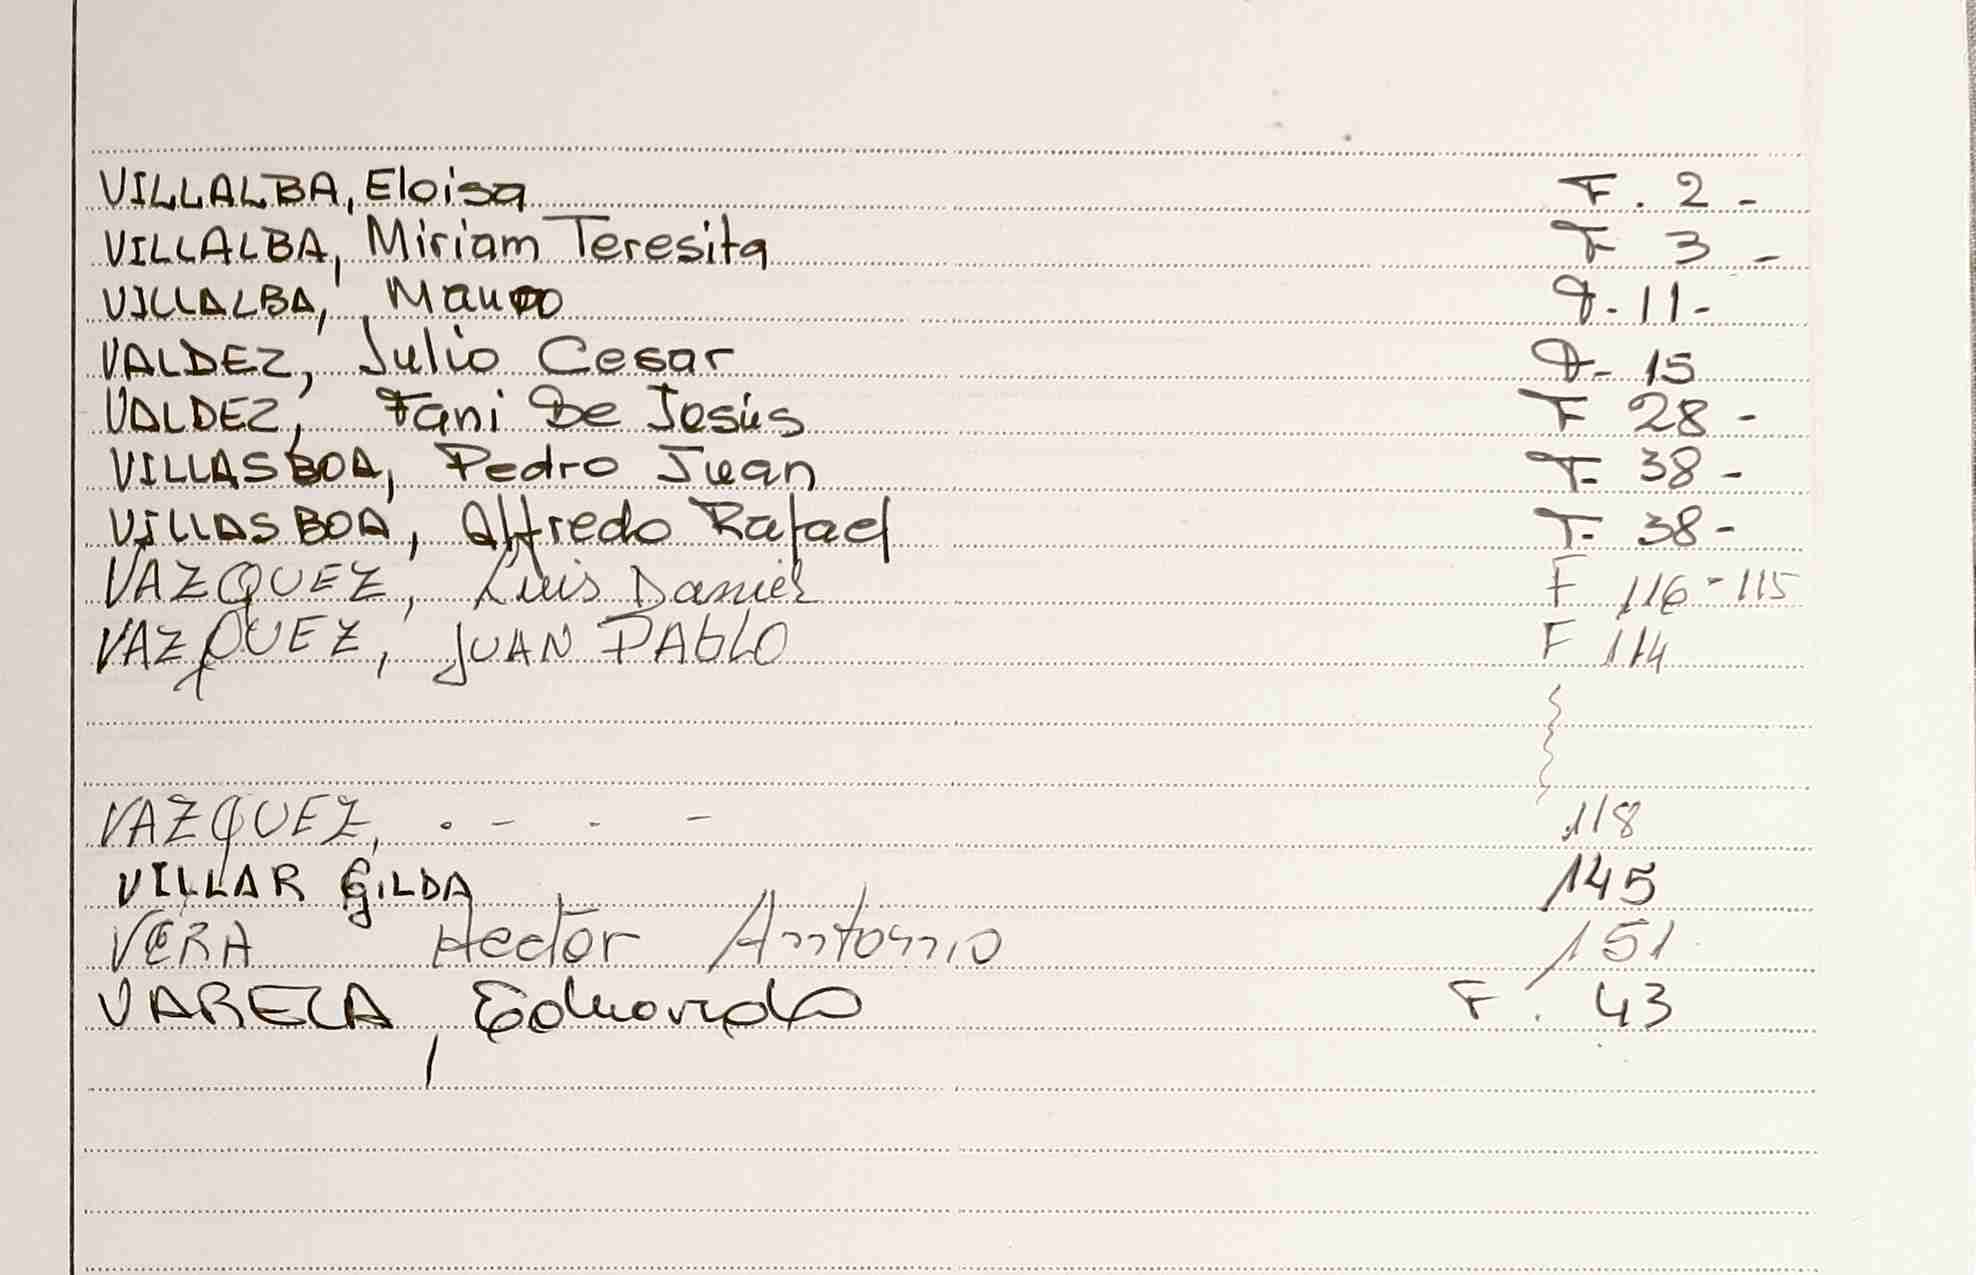 VILLALBA, Eloisa F. 2 -
VILLALBA, Miriam Teresita F 3 -
VILLALBA, Mauro F. 11 -
VALDEZ, Julio Cesar F. 15
VALDEZ, Fani De Jesús F 28 -
VILLASBOA, Pedro Juan F. 38 -
VILLASBOA, Alfredo Rafael F. 38 -
VAZQUEZ, Luis Daniel F 116 - 115
VAZQUEZ, JUAN PAbLO F 114
VAZQUEZ, . - . - 118
VILLAR GILDA 145
VERA Hector Antonio 151
VARELA, Eduardo F. 43